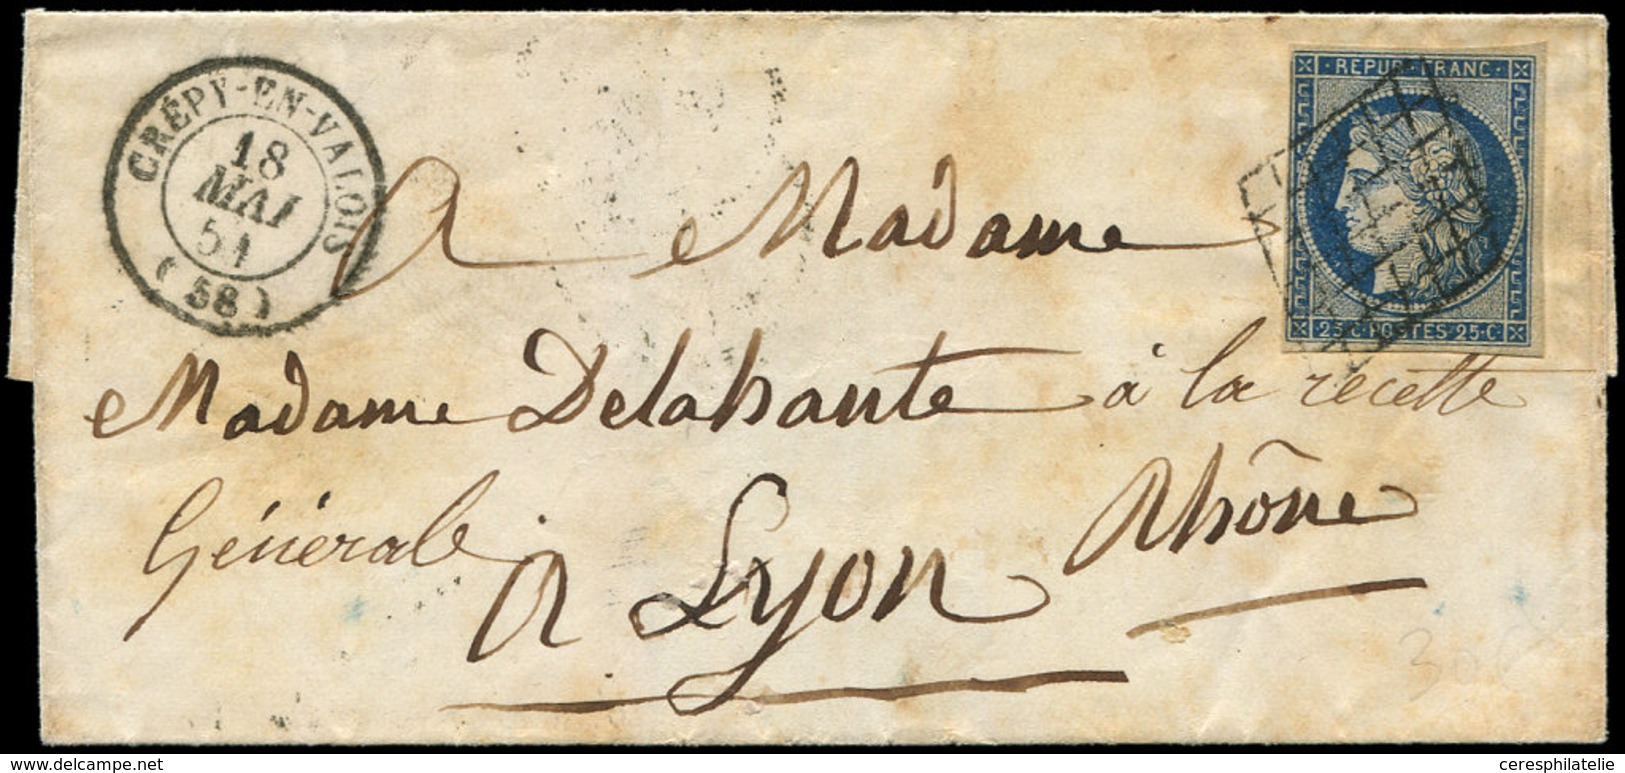 CRÉPY-EN-VALOIS
18
MAI
51
(58)
REPUB·FRANC·
25·C·POSTES·25·C·
A Madame
Madame Delahante à la recette
Générale
A Lyon Rhône
www.delcampe.net
ceresphilatelie